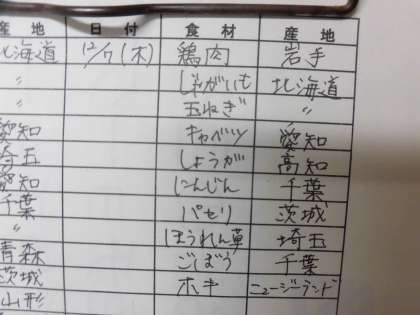 産 地 日 付 食 材 産 地
北海道 12/7(木) 鶏肉 岩手
〃 じゃがいも 北海道
〃 玉ねぎ 〃
愛知 キャベツ 愛知
埼玉 しょうが 高知
愛知 にんじん 千葉
千葉 パセリ 茨城
〃 ほうれん草 埼玉
青森 ごぼう 千葉
茨城 ホキ ニュージーランド
山形